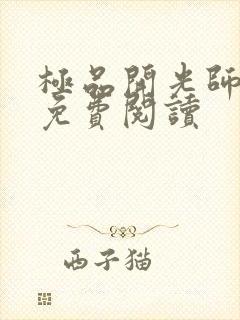 極品開光師
免費閱讀
西子猫